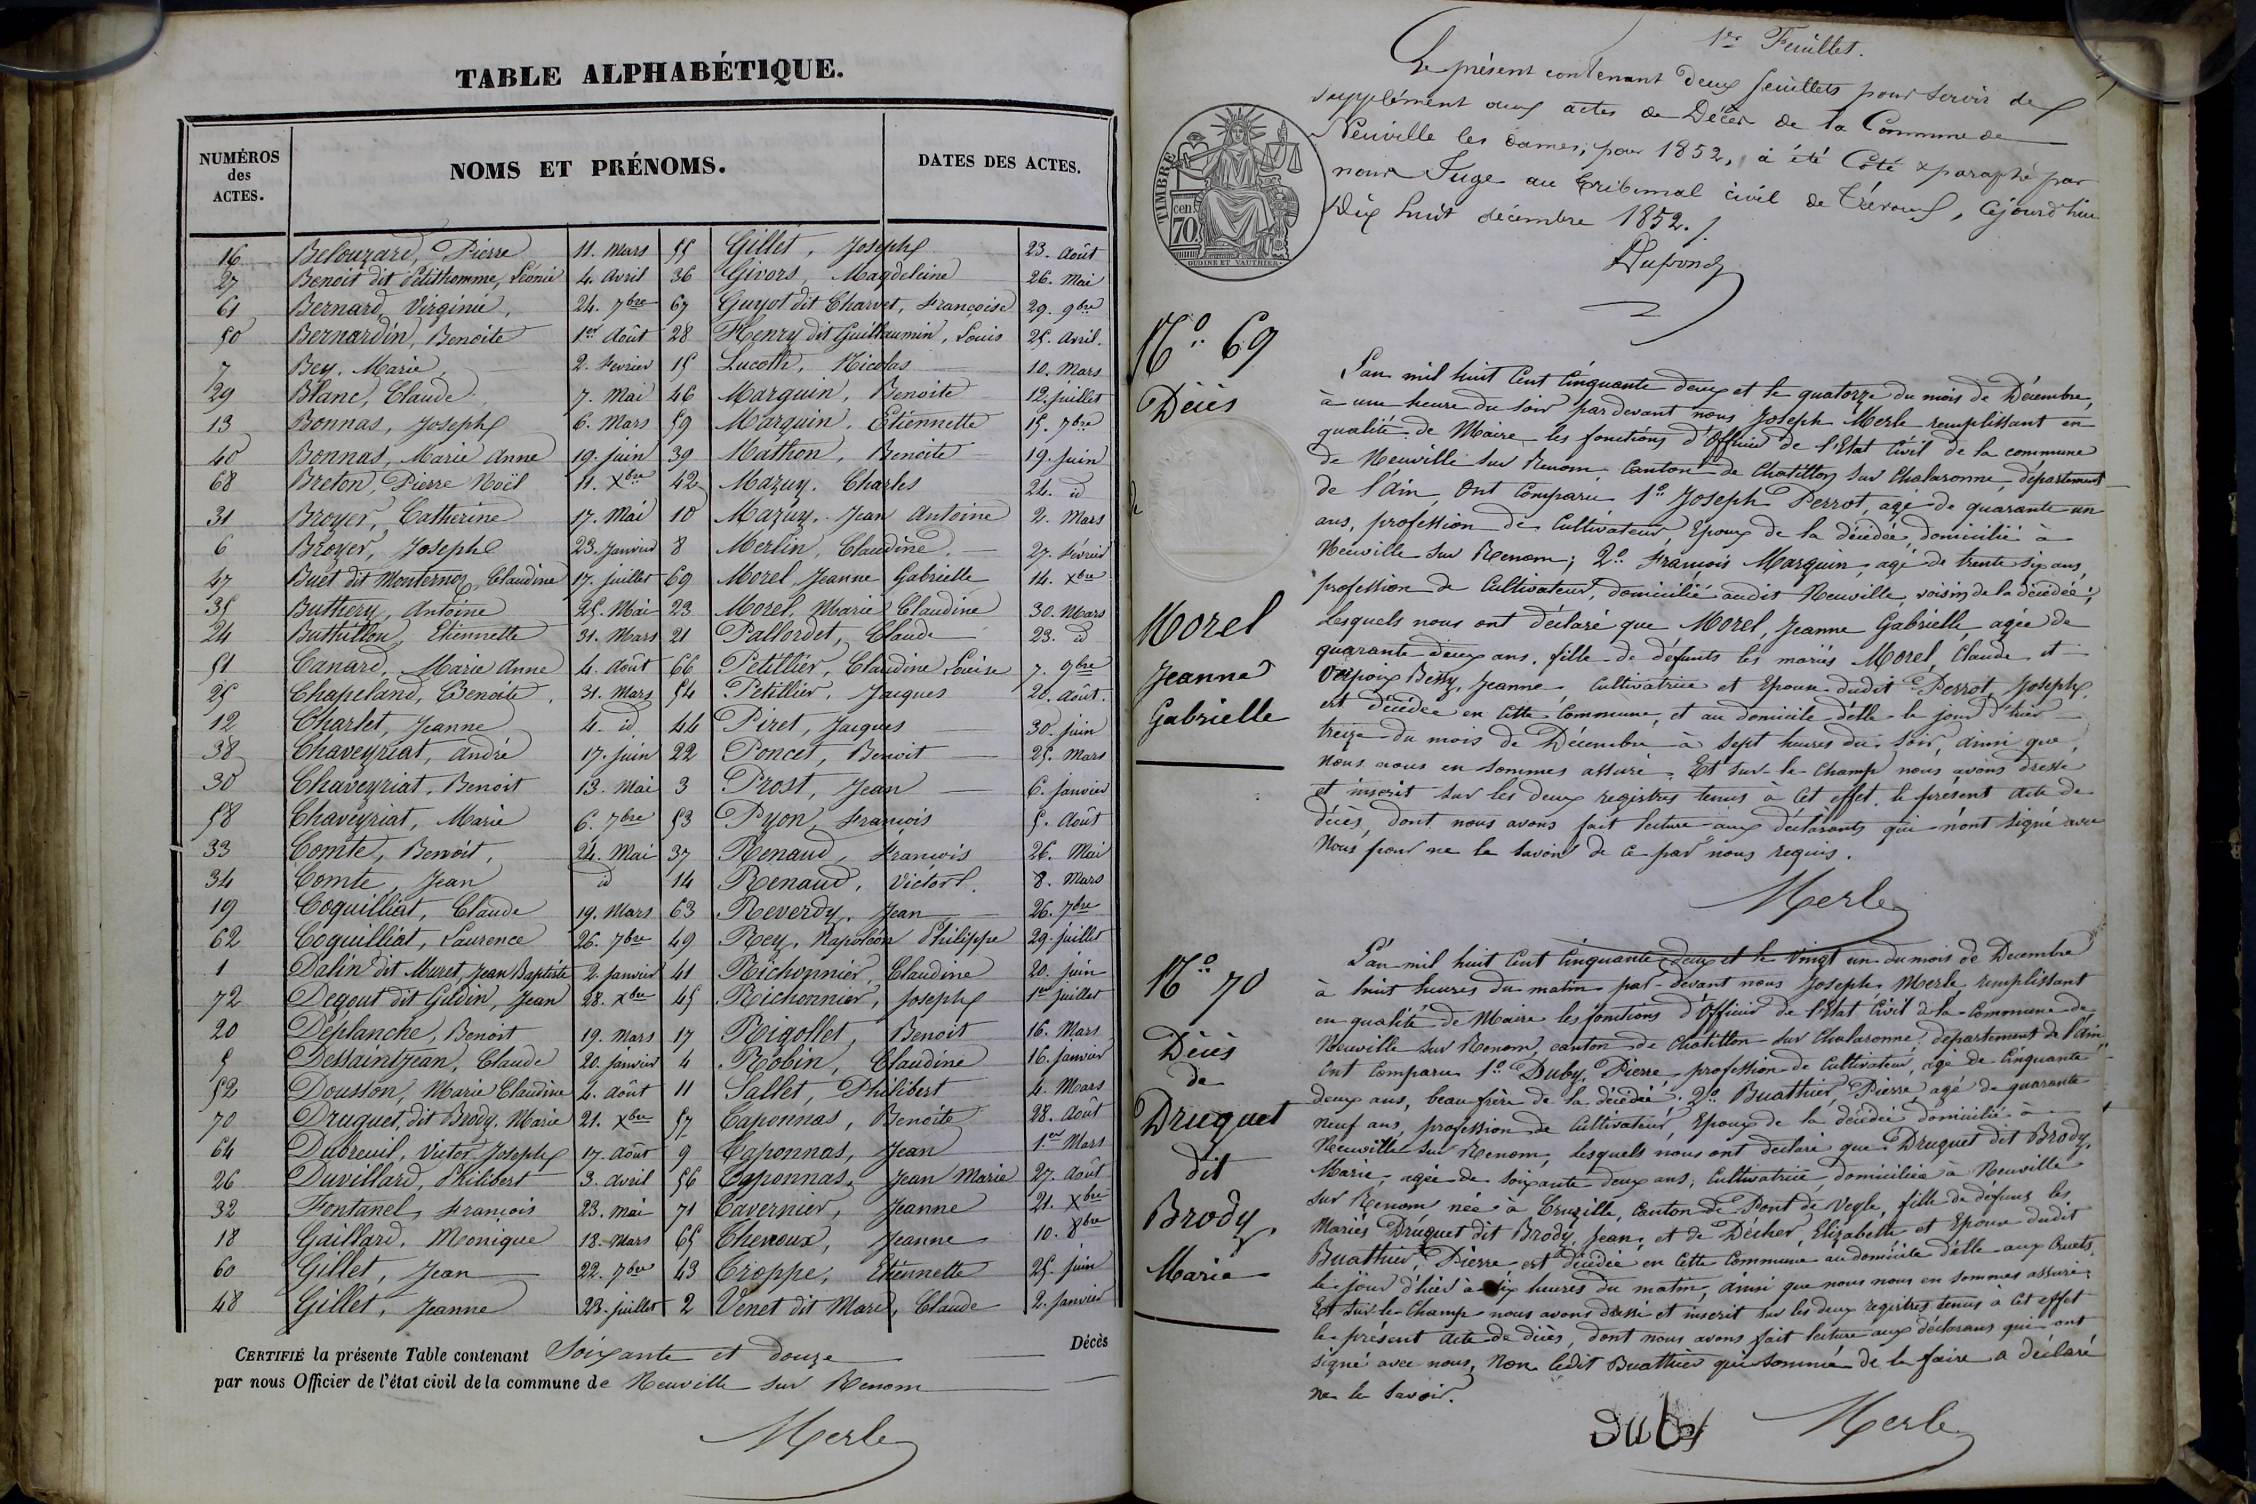 TABLE ALPHABÉTIQUE.
NUMÉROS des ACTES.
NOMS ET PRÉNOMS.
DATES DES ACTES.
16 Belouzard, Pierre 11. Mars 55 Gillet, Joseph 23. Août
27 Benoit dit Petithomme, Léonie 4. Avril 36 Givors, Magdeleine 26. Mai
61 Bernard, Virginie, 24. 7bre 67 Guyot dit Charvet, Françoise 29. 9bre
50 Bernardin, Benoite 1er Août 28 Henry dit Guillaumin, Louis 25. Avril.
7 Bey, Marie, 2. Fevrier 15 Lucotte, Nicolas 10. Mars
29 Blanc, Claude 7. Mai 46 Marquin, Benoite 12. juillet
13 Bonnas, Joseph 6. Mars 59 Marquin, Etiennette 15. 7bre
40 Bonnas, Marie Anne 19. juin 39 Mathon, Benoite 19. juin
68 Breton, Pierre Noël 11. Xbre 42 Mazuy, Charles 24. id
31 Broyer, Catherine 17. Mai 10 Mazuy, Jean Antoine 2. Mars
6 Broyer, Joseph 23. Janvier 8 Merlin, Claudine. 27. Février
47 Buet dit Monternoz, Claudine 17. juillet 69 Morel Jeanne Gabrielle 14. Xbre
35 Buthery, Antoine 25. Mai 23 Morel, Marie Claudine 30. Mars
24 Buthillon, Etiennette 31. Mars 21 Pallordet, Claude 23. id
51 Canard, Marie Anne 4. Août 66 Petillier, Claudine Louise 7. 9bre
25 Chapeland, Benoite, 31. Mars 54 Petillier, Jacques 20. Août.
12 Charlet, Jeanne 4. id 44 Piret, Jacques 30. juin
38 Chaveyriat, André 17. juin 22 Poncet, Benoit 25. Mars
30 Chaveyriat, Benoit 13. Mai 3 Prost, Jean 6. janvier
58 Chaveyriat, Marie 6. 7bre 53 Pyon, François 5. Août
33 Comte, Benoit, 24. Mai 37 Renaud, François 26. Mai
34 Comte, Jean id 14 Renaud, Victor. 8. Mars
19 Coquilliat, Claude 19. Mars 63 Reverdy, Jean 26. 7bre
62 Coquilliat, Laurence 26. 7bre 49 Rey, Napoléon Philippe 29. juillet
1 Dalin dit Muret, Jean Baptiste 2. Janvier 41 Richonnier, Claudine 20. juin
72 Degout dit Gudin, Jean 28. Xbre 45 Richonnier, Joseph 1er juillet
20 Déplanche, Benoit 19. Mars 17 Rigollet, Benoit 16. Mars
5 Dessaintjean, Claude 20. Janvier 4 Robin, Claudine 16. janvier
52 Dousson, Marie Claudine 4. Août 11 Sallet, Philibert 4. Mars
70 Druguet, dit Brody, Marie 21. Xbre 57 Taponnas, Benoite 28. Août
64 Dubreuil, Victor Joseph 17. Août 9 Taponnas, Jean 1er Mars
26 Duvillard, Philibert 3. avril 56 Taponnas, Jean Marie 27. Août
32 Fontanel, François 23. mai 71 Tavernier, Jeanne 21. Xbre
18 Gaillard, Monique 18. Mars 65 Thenoux, Jeanne 10. 8bre
60 Gillet, Jean 22. 7bre 43 Troppe, Etiennette 25. juin
48 Gillet, Jeanne 23. juillet 2 Venet dit Maré, Claude 2. Janvier
CERTIFIÉ la présente Table contenant Soixante et douze Décès
par nous Officier de l'état civil de la commune de Neuville sur Renom
Merle
1er Feuillet.
Le présent contenant deux feuillets pour servir de
supplément aux actes de Décès de la Commune de
Neuville les dames, pour 1852, a été Coté & paraphé par
nous Juge au tribunal civil de Trévoux, cejourd'hui
Dix huit décembre 1852./
Dupond
TIMBRE
70 cen
OUDINE ET VAUTHIER.
No. 69
Décès
Morel
Jeanne
Gabrielle
L'an mil huit Cent Cinquante deux et le quatorze du mois de Décembre,
à une heure du soir pardevant nous Joseph Merle remplissant en
qualité de Maire les fonctions d'Officier de l'Etat Civil de la commune
de Neuville sur Renom, Canton de Chatillon sur Chalaronne, département
de l'Ain, Ont Comparu 1o. Joseph Perrot, agé de quarante un
ans, profession de Cultivateur, Epoux de la décédée, domicilié à
Neuville sur Renom; 2o. François Marquin, agé de trente six ans,
profession de Cultivateur, domicilié audit Neuville, voisin de la décédée;
Lesquels nous ont déclaré que Morel, Jeanne Gabrielle, agée de
quarante deux ans, fille de défunts les mariés Morel, Claude et
Bessy, Jeanne, Cultivatrice et Epouse dudit Perrot, Joseph,
est décédée en cette Commune, et au domicile d'elle le jour d'hier
treize du mois de Décembre à sept heures du soir, ainsi que
Nous nous en sommes assuré. Et sur-le-Champ nous avons dressé
et inscrit sur les deux registres tenus à Cet effet, le présent Acte de
décès, dont nous avons fait lecture aux déclarants qui n'ont signé avec
Nous pour ne le savoir de ce par nous requis.
Merle
No. 70
Décès
de
Druguet
dit
Brody,
Marie
L'an mil huit Cent Cinquante deux et le Vingt un du mois de Decembre
à huit heures du matin par-devant nous Joseph Merle remplissant
en qualité de Maire les fonctions d'Officier de l'Etat Civil de la Commune de
Neuville sur Renom, canton de Chatillon sur Chalaronne, departement de l'Ain
Ont Comparu 1o. Duby, Pierre profession de Cultivateur, agé de Cinquante
deux ans, beau frère de la décédée. 2o. Buathier, Pierre, agé de quarante
neuf ans, profession de Cultivateur, Epoux de la décédée domicilié à
Neuville sur Renom, lesquels nous ont déclaré que Druguet dit Brody,
Marie, agée de soixante deux ans, Cultivatrice, domiciliée à Neuville
sur Renom née à Cruzille, Canton de Pont de Veyle, fille de défunts les
Mariés Druguet dit Brody, Jean, et de Décher, Elizabeth et Epouse dudit
Buathier, Pierre, est décédée en Cette Commune au domicile d'elle aux Cruets
le jour d'hier à six heures du matin, ainsi que nous nous en sommes assuré.
Et sur-le-Champ nous avons dressé et inscrit sur les deux registres tenus à Cet effet
le présent Acte de décès, dont nous avons fait lecture aux déclarans qui ont
signé avec nous, Non ledit Buathier qui sommé de le faire a déclaré
ne le savoir.
Duby Merle